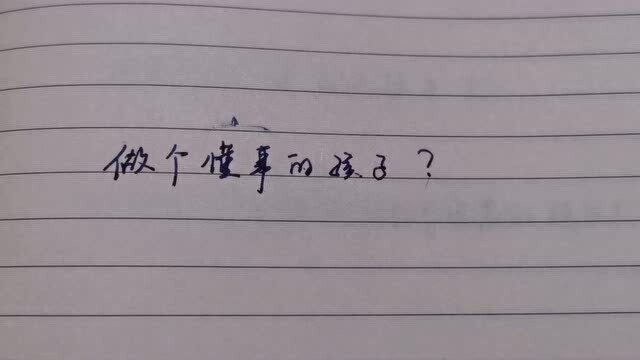 做个懂事的孩子？